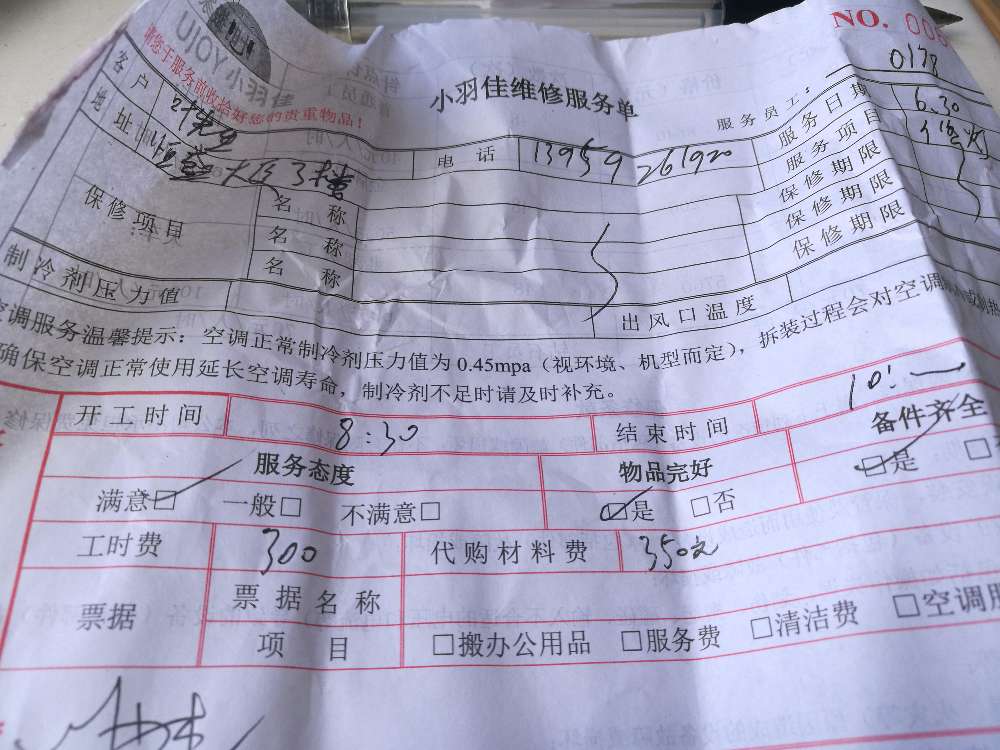 小YOJU
小羽佳
NO. 008
请您于服务前收拾好您的贵重物品!
小羽佳维修服务单
服务员工: 0178
客户 叶先生 电话 13959 261920 服务日期 6.30
地址 大厦3楼 服务项目
保修项目 名称 保修期限
名称 保修期限
名称 保修期限
制冷剂压力值 出风口温度
空调服务温馨提示:空调正常制冷剂压力值为0.45mpa(视环境、机型而定),拆装过程会对空调
确保空调正常使用延长空调寿命,制冷剂不足时请及时补充。
开工时间 8:30 结束时间 10:一
服务态度 物品完好 备件齐全
满意☑ 一般□ 不满意□ ☑是 □否 ☑是 □
工时费 300 代购材料费 350元
票据 票据名称
项目 □搬办公用品 □服务费 □清洁费 □空调服